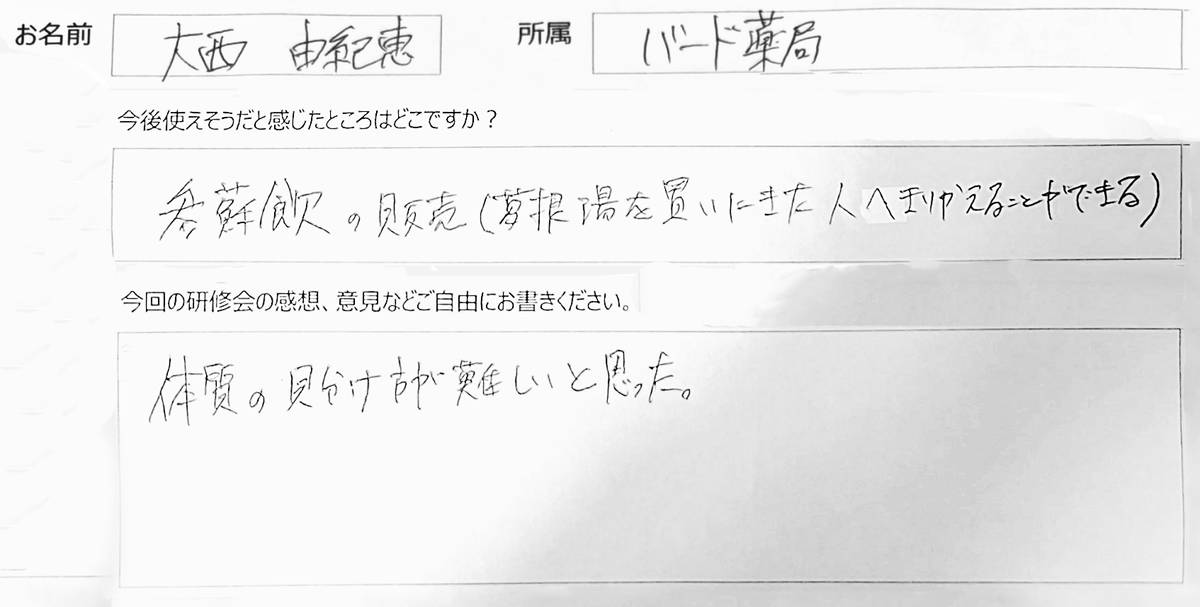 お名前 大西 由紀恵 所属 バード薬局
今後使えそうだと感じたところはどこですか？
参蘇飲の販売(葛根湯を買いにきた人へきりかえることができる)
今回の研修会の感想、意見などご自由にお書きください。
体質の見分け方が難しいと思った。